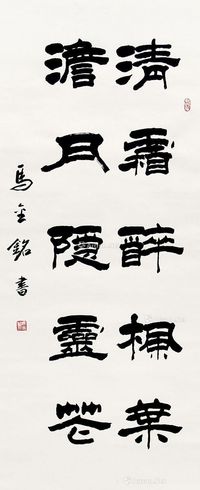 清霜醉楓葉
澹月隱蘆花
馬金銘書